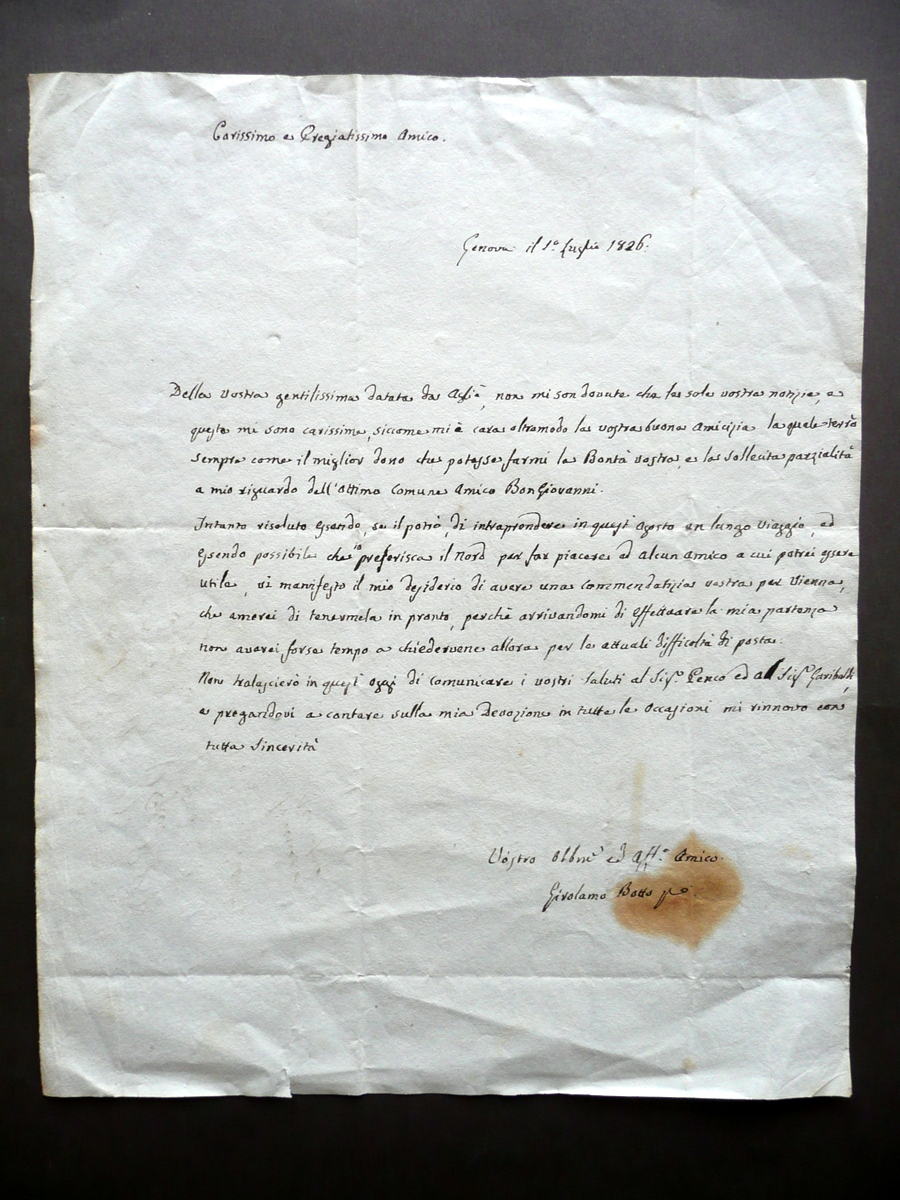 Carissimo e Pregiatissimo Amico.
Genova il 1.º Luglio 1826.
Della vostra gentilissima datata da Agliè, non mi son dovute che le sole vostre notizie, e
queste mi sono carissime, siccome mi è cara oltramodo la vostra buona Amicizia la quale terrò
sempre come il miglior dono che potesse farmi la Bontà vostra, e la sollecita parzialità
a mio riguardo dell'Ottimo Comune Amico BonGiovanni.
Intanto risoluto essendo, se il potrò, di intraprendere in quest'Agosto un lungo viaggio, ed
essendo possibile che io preferisca il Nord per far piacere ad alcun Amico a cui potrei essere
utile, vi manifesto il mio desiderio di avere una commendatizia vostra per Vienna,
che amerei di tenermela in pronto, perchè arrivandomi di effettuare la mia partenza
non averei forse tempo a chiedervene allora per le attuali difficoltà di posta.
Non tralascierò in quest'oggi di comunicare i vostri saluti al Sig.r Penco ed al Sig.r Garibaldi,
e pregandovi a contare sulla mia Devozione in tutte le Occasioni mi rinnovo con
tutta sincerità
Vostro Obbmo ed Aff.º Amico.
Girolamo Botto